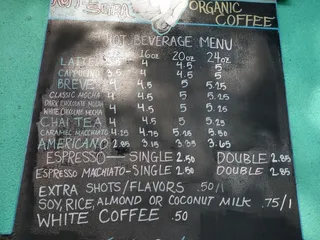 ORGANIC
COFFEE
HOT BEVERAGE MENU
16oz 20oz 24oz
LATTE 4 4.5 5
CAPPUCINO 3.5 4 4.5 5
BREVE 4 4.5 5 5.25
CLASSIC MOCHA 4 4.5 5 5.25
DARK CHOCOLATE MOCHA 4 4.5 5 5.25
WHITE CHOCOLATE MOCHA 4 4.5 5 5.25
CHAI TEA 4 4.5 5 5.25
CARAMEL MACCHIATO 4.25 4.75 5.25 5.50
AMERICANO 2.85 3.15 3.35 3.65
ESPRESSO — SINGLE 2.50 DOUBLE 2.85
ESPRESSO MACCHIATO - SINGLE 2.50 DOUBLE 2.85
EXTRA SHOTS/FLAVORS .50/1
SOY, RICE, ALMOND OR COCONUT MILK .75/1
WHITE COFFEE .50